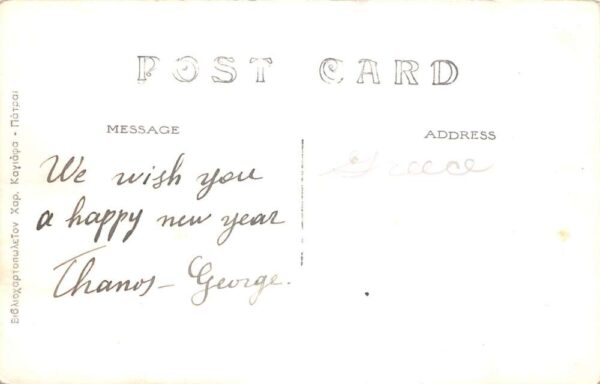 POST CARD
MESSAGE
ADDRESS
We wish you
a happy new year
Thanos - George.
Greece
Βιβλιοχαρτοπωλεῖον Χαρ. Καγιάφα • Πάτραι